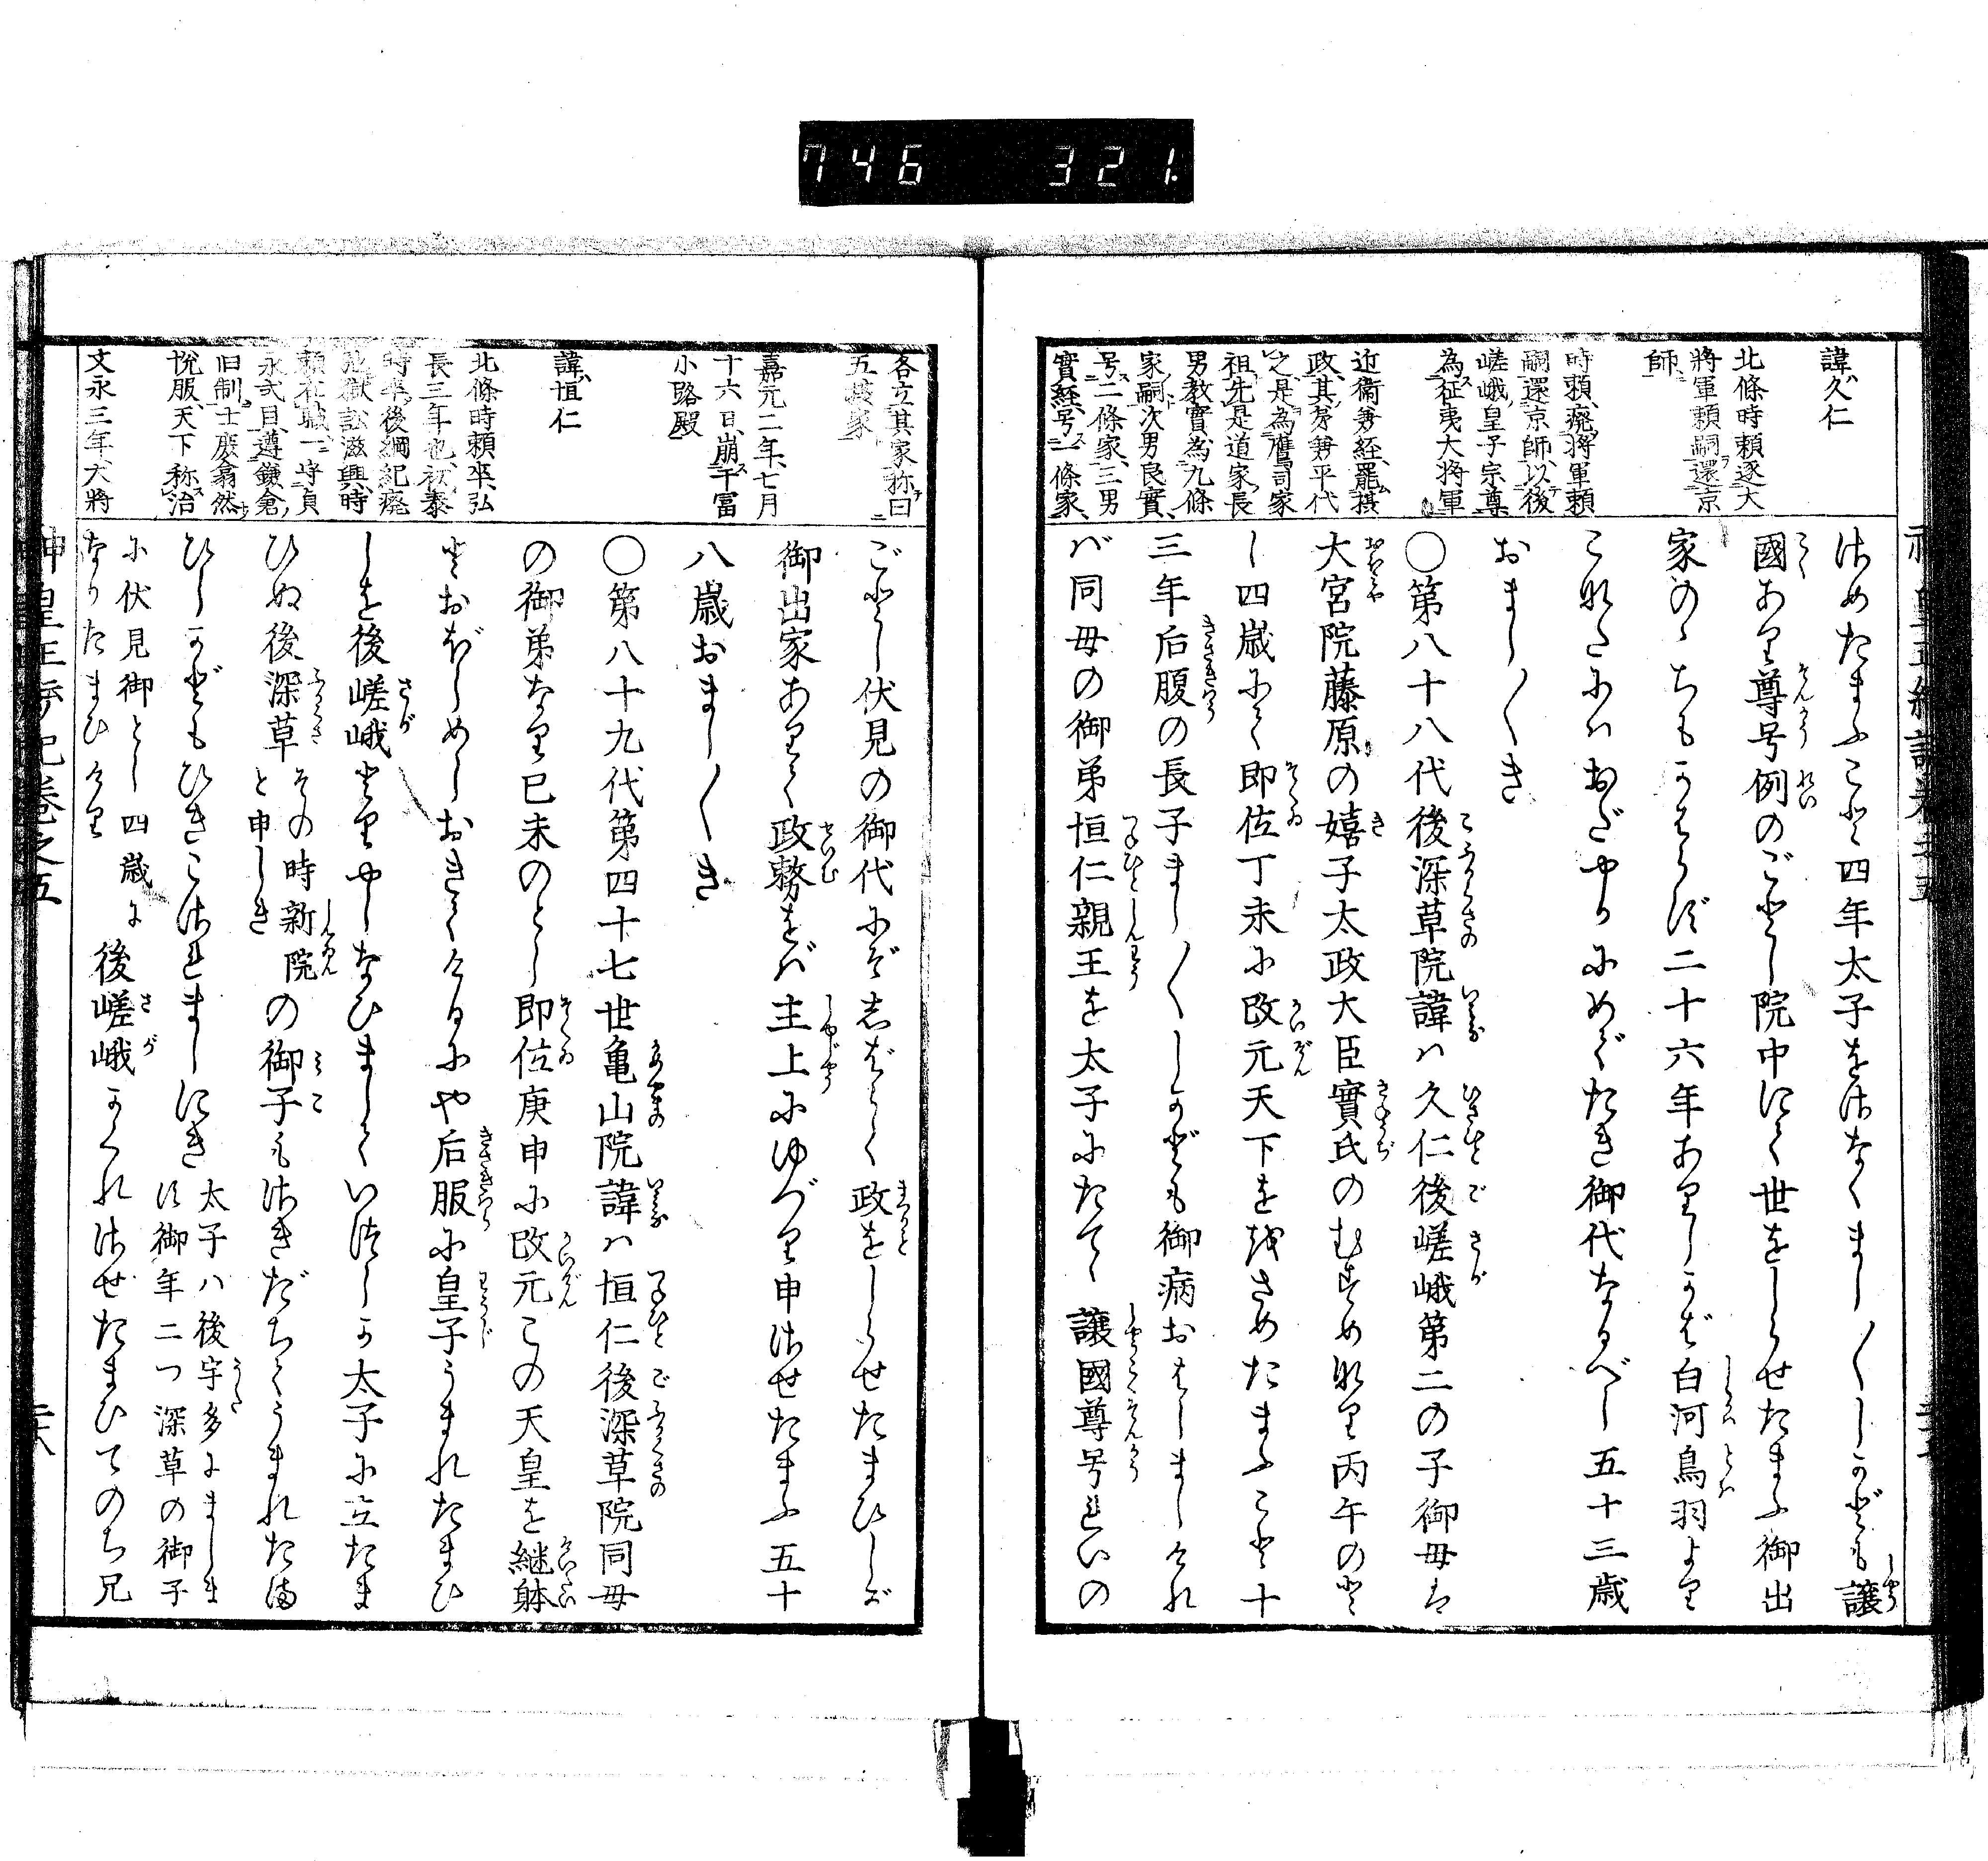 746 321
諱久仁
北條時頼逐大
將軍頼嗣還京
師
時頼、廢將軍頼
嗣還京師、以後
嵯峨皇子宗尊
為征夷大將軍
近衞兼経、罷摂
政、其弟兼平代
之、是為鷹司家
祖、先是道家、長
男教實為九條
家嗣、次男良實、
号二條家、三男
實経、号一條家、
ほめたまふこと四年太子をほなくまし〳〵しかども譲
國あり尊号例のごとし院中にて世をしらせたまふ御出
家のゝちもかはらず二十六年ありしかば白河鳥羽より
こなたにはおだやかにめでたき御代なるべし五十三歳
おまし〳〵き
〇第八十八代後深草院諱は久仁後嵯峨第二の子御母は
大宮院藤原の嬉子太政大臣實氏のむすめなり丙午のと
し四歳にて即位丁未に改元天下を治さめたまふこと十
三年后腹の長子まし〳〵しかども御病おはしましけれ
ば同母の御弟恒仁親王を太子にたてゝ譲國尊号れいの
各立其家称曰
五摂家
嘉元二年、七月
十六日、崩于冨
小路殿
諱、恒仁
北條時頼卒、弘
長三年也、初泰
時卒、後綱紀廃
弛獄訟滋興、時
頼在職、一守貞
永式目、遵鎌倉
旧制、士庶翕然
悦服、天下称治
文永三年、大將
ごとし伏見の御代にぞしばらく政をしらせたまひしが
御出家ありて政務をば主上にゆづり申ほせたまふ五十
八歳おまし〳〵き
〇第八十九代第四十七世亀山院諱は恒仁後深草院同母
の御弟なり已未のとし即位庚申に改元この天皇を継躰
とおぼしめしおきてけるにや后服に皇子うまれたまひ
しを後嵯峨とりやしなひましていつしか太子に立たま
ひぬ後深草その時新院と申しきの御子もほきだちてうまれたま
ひしかどもひきこほれましにき太子ハ後宇多にましま
す御年二つ深草の御子
に伏見御とし四歳に
なりたまひけり後嵯峨かくれほせたまひてのち兄